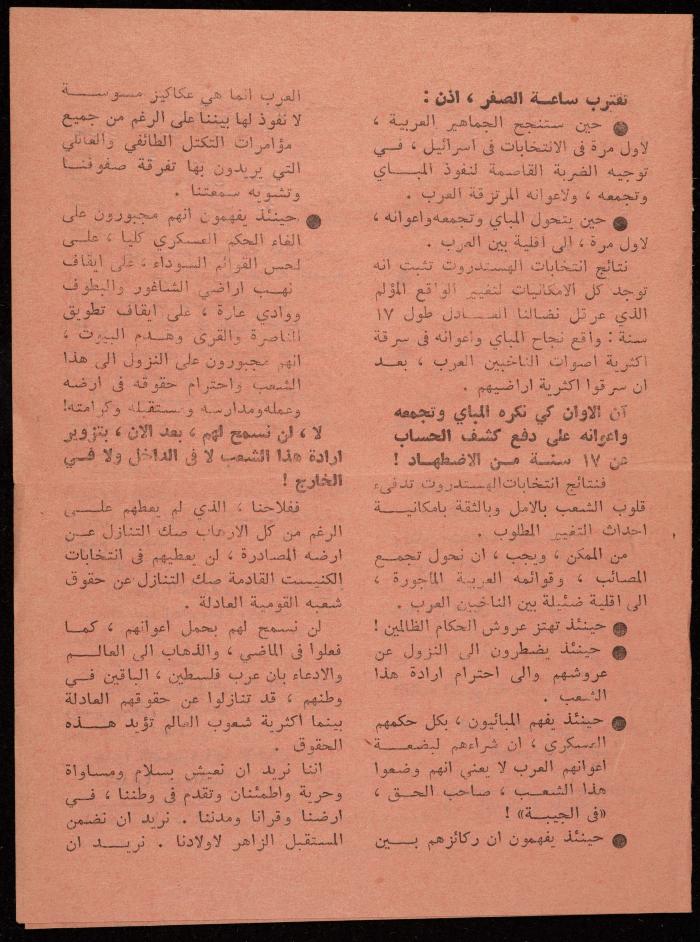 تقترب ساعــة الصفر ، اذن :
● حين ستنجح الجماهير العربية ،
لاول مرة فى الانتخابات فى اسرائيل ، فــي
توجيه الضربة القاصمة لنفوذ المبــاي
وتجمعه ، ولاعوانه المرتزقة العرب .
● حين يتحول المباي وتجمعه واعوانه ،
لاول مرة ، الى اقلية بين العرب .
نتائج انتخابات الهستدروت تثبت انه
توجد كل الامكانيات لتغيير الواقع المؤلم
الذي عرتل نضالنا العــادل طول ١٧
سنة : واقع نجاح المباي واعوانه فى سرقة
اكثرية اصوات الناخبين العرب ، بعــد
ان سرقوا اكثرية اراضيهم .
آن الاوان كي نكره المباي وتجمعه
واعوانه على دفع كشف الحساب
عن ١٧ سنــة مــن الاضطهــاد !
فنتائج انتخابات الهستدروت تدفىء
قلوب الشعب بالامل وبالثقة بامكانيــة
احداث التغيير المطلوب .
من الممكن ، ويجب ، ان نحول تجمــع
المصائب ، وقوائمه العربية المأجورة ،
الى اقلية ضئيلة بين الناخبين العرب .
● حينئذ تهتز عروش الحكام الظالمين !
● حينئذ يضطرون الى النزول عن
عروشهم والى احترام ارادة هذا
الشعب .
● حينئذ يفهم المبائيون ، بكل حكمهم
العسكري ، ان شراءهم لبضعــة
اعوانهم العرب لا يعني انهم وضعوا
هذا الشعــب ، صاحب الحــق ،
«فى الجيبة» !
● حينئذ يفهمون ان ركائزهم بــين
العرب انما هي عكاكيز مسوســة
لا نفوذ لها بيننا على الرغم من جميع
مؤامرات التكتل الطائفي والعائلي
التي يريدون بها تفرقة صفوفنــا
وتشويه سمعتنا .
● حينئذ يفهمون انهم مجبورون على
الغاء الحكم العسكري كليا ، علــى
لحس القوائم السوداء ، على ايقاف
نهــب اراضي الشاغور والبطوف
ووادي عارة ، على ايقاف تطويق
الناصرة والقرى وهــدم البيوت ،
انهم مجبورون على النزول الى هذا
الشعب واحترام حقوقه فى ارضه
وعمله ومدارسه ومستقبله وكرامته!
لا ، لن نسمح لهم ، بعد الان ، بتزوير
ارادة هذا الشعب لا فى الداخل ولا فــي
الخارج !
ففلاحنا ، الذي لم يعطهم علــى
الرغم من كل الارهاب صك التنازل عــن
ارضه المصادرة ، لن يعطيهم فى انتخابات
الكنيست القادمة صك التنازل عن حقوق
شعبه القومية العادلة .
لن نسمح لهم بحمل اعوانهم ، كمــا
فعلوا فى الماضي ، والذهاب الى العالــم
والادعاء بان عرب فلسطين ، الباقين فــي
وطنهم ، قد تنازلوا عن حقوقهم العادلة
بينما اكثرية شعوب العالم تؤيد هــذه
الحقوق .
اننا نريد ان نعيش بسلام ومساواة
وحرية واطمئنان وتقدم فى وطننا ، فــي
ارضنا وقرانا ومدننا . نريد ان نضمن
المستقبل الزاهر لاولادنا . نريــد ان